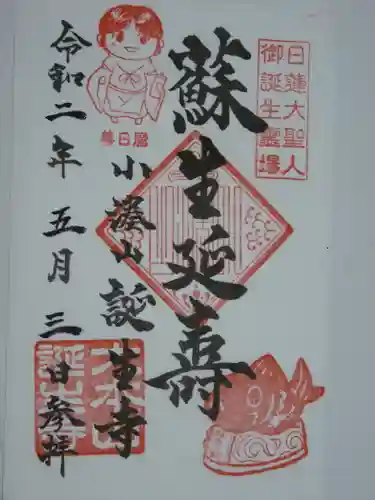 日蓮大聖人
御誕生霊場
蘇生延寿
小湊山
誕生寺
善日麿
令和二年五月三日参拝